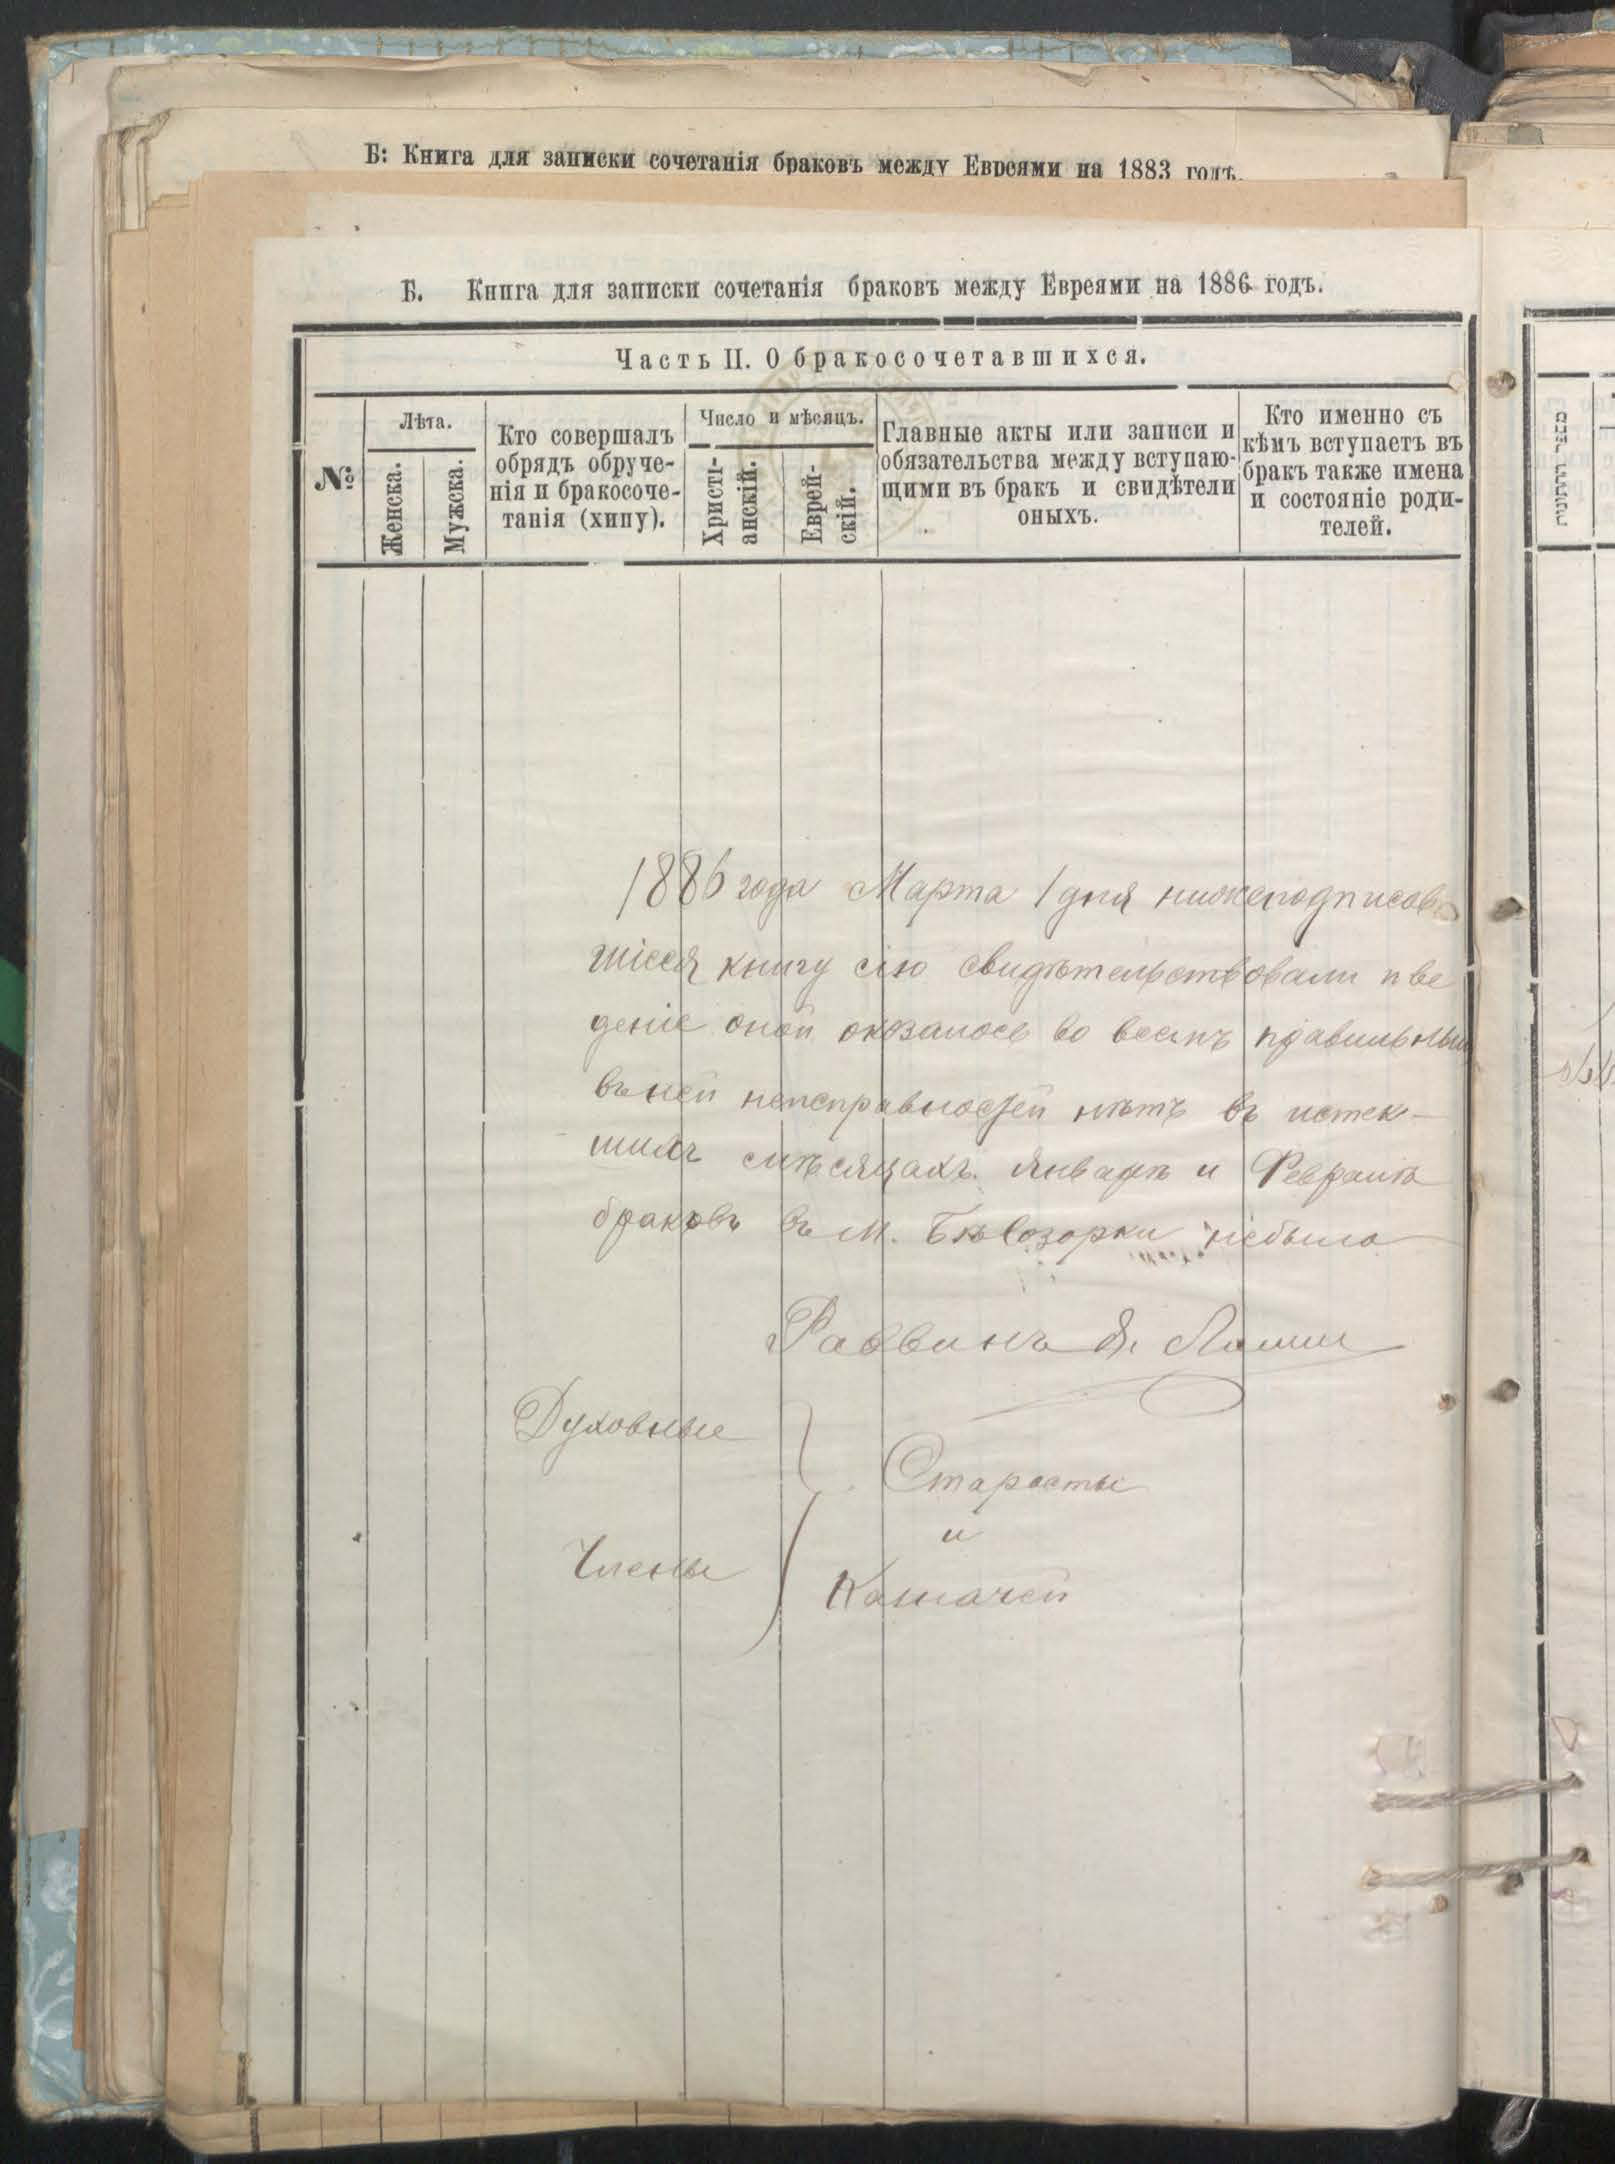 Б: Книга для записки сочетанія браковъ между Евреями на 1883 годъ.
Б. Книга для записки сочетанія браковъ между Евреями на 1886 годъ.
Часть II. О бракосочетавшихся.
№
Лѣта.
Женска.
Мужска.
Кто совершалъ
обрядъ обруче-
нія и бракосоче-
танія (хипу).
Число и мѣсяцъ.
Христі-
анскій.
Еврей-
скій.
Главные акты или записи и
обязательства между вступаю-
щими въ бракъ и свидѣтели
оныхъ.
Кто именно съ
кѣмъ вступаетъ въ
бракъ также имена
и состояніе роди-
телей.
1886 года Марта 1 дня нижеподписав
шіеся книгу сію свидѣтельствовали и ве
деніе оной оказалось во всемъ правильным
въ ней неисправностей нѣтъ въ истек-
шихъ мѣсяцахъ Январѣ и Февралѣ
браковъ въ м. Бѣлозорки небыло
Раввинъ Я.
Духовные
Старосты
и
Члены
Казначей